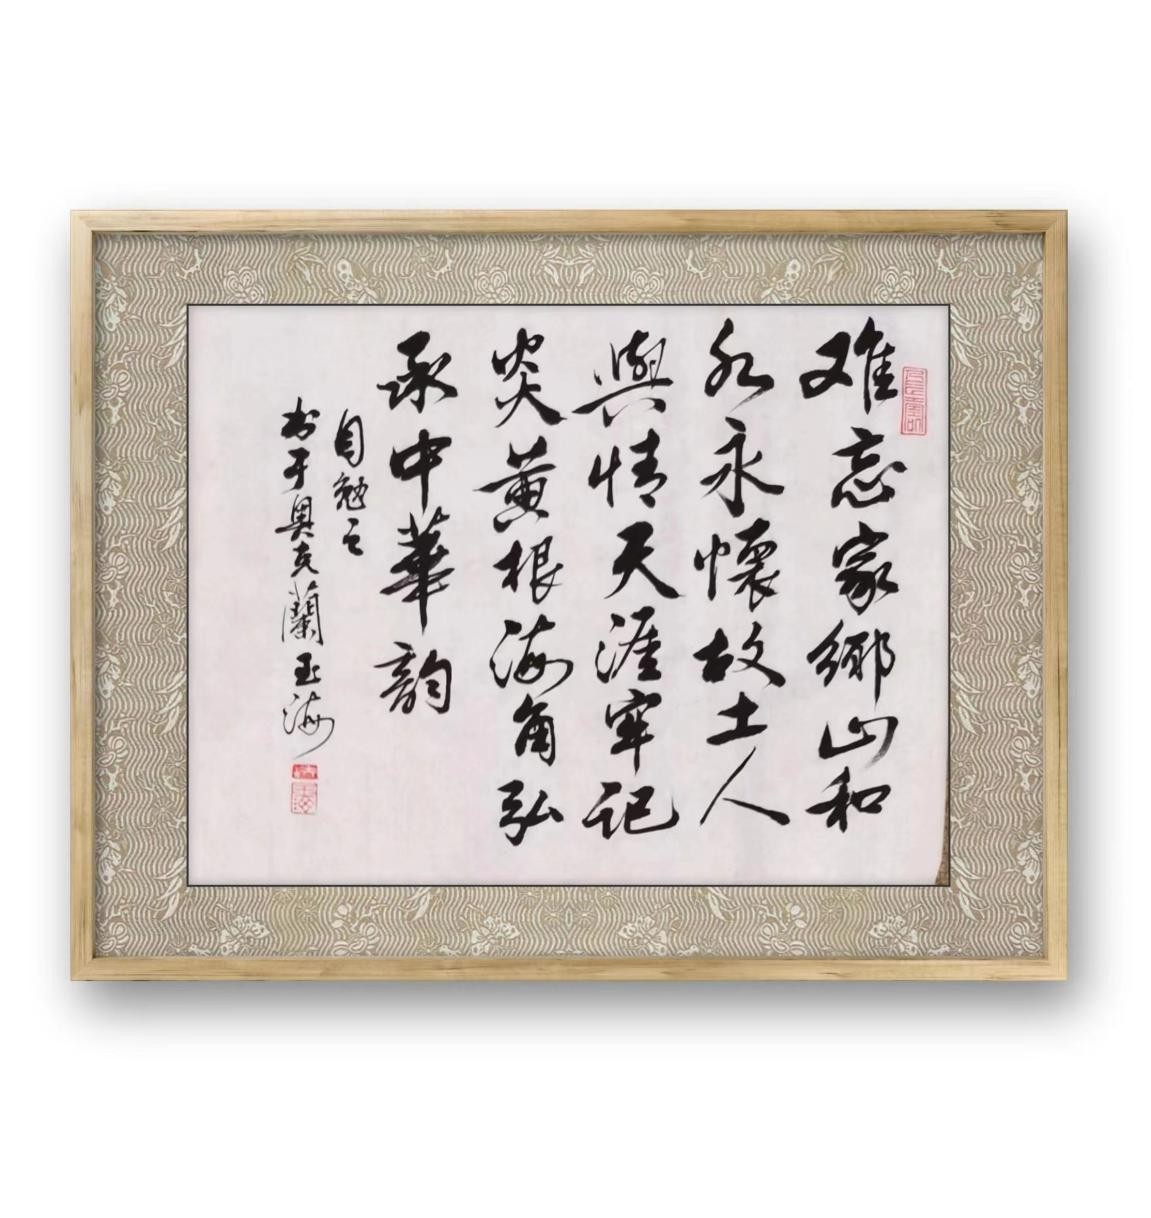 难忘家鄉山和
水永懷故土人
與情天涯牢记
炎黄根海角弘
承中華韵
自勉之
书于奥克蘭玉海